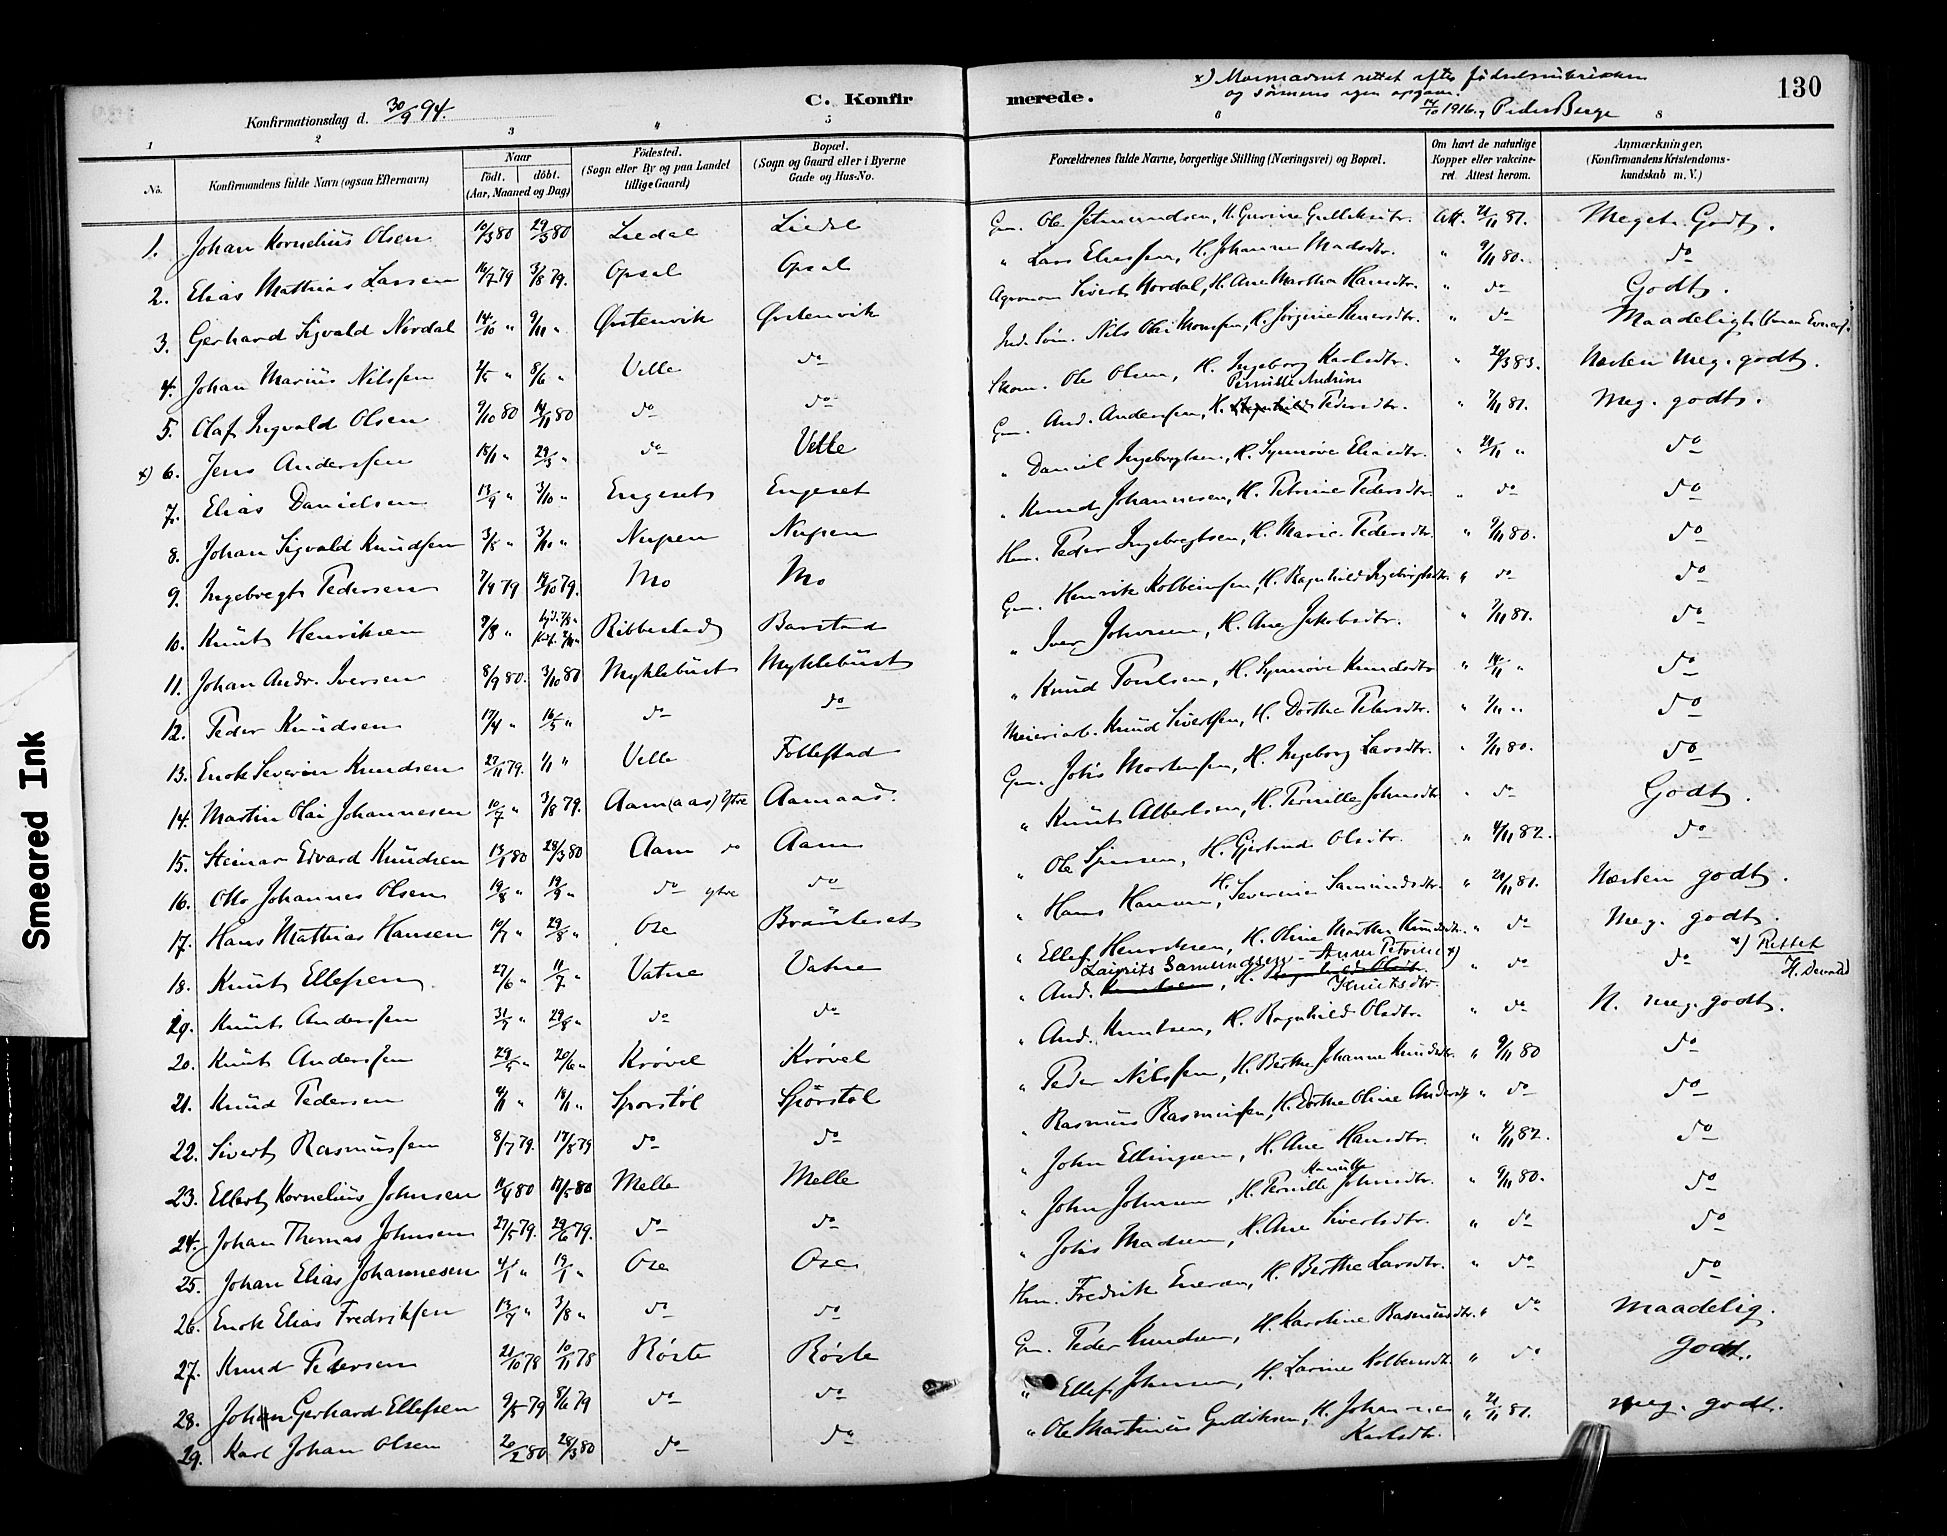 x) Mormadnet rettet efter fødselsministeren
og sønnens egen opgave.
14/10 1916, Peder Berge
130
Konfirmationsdag d. 30/9 94.
C. Konfir merede.
1 2 3 4 5 6 8
No.
Konfirmandens fulde Navn (ogsaa Efternavn)
Naar
født. døbt.
(Aar, Maaned og Dag)
Fødested.
(Sogn eller By og paa Landet
tillige Gaard)
Bopæl.
(Sogn og Gaard eller i Byerne
Gade og Hus-No.
Forældrenes fulde Navne, borgerlige Stilling (Næringsvei) og Bopæl.
Om havt de naturlige
Kopper eller vakcine-
ret. Attest herom.
Anmærkninger,
(Konfirmandens Kristendoms-
kundskab m. V.)
1. Johan Kornelius Olsen 10/3 80 29/3 80 Liedal Liedal Gm. Ole Jetmundsen, H. Gurine Gulliksdtr. Att. 21/11 81. Meget Godt.
2. Elias Mathias Larsen 16/7 79 3/8 79. Opsal Opsal " Lars Eliassen, H. Johanne Madsdtr. " 9/11 80. do
3. Gerhard Sigvald Nordal 14/10 " 9/11 " Østenvik Østenvik Agronom Sivert Nordal, H. Ane Martha Hansdtr. " do Godt.
4. Johan Marius Nilssen 4/5 " 8/6 " Velle do Ind. Søm. Nils Olai Monssen, H. Jørgine Iversdtr. " do Maadeligt
5. Olaf Ingvald Olsen 9/10 80 14/11 80 do do Skom. Ole Olsen, H. Ingeborg Karlsdtr. " 29/3 83. Næsten meg. godt.
x) 6. Jens Anderssen 18/1 " 29/3 " do Velle Gm. And. Anderssen, H. Pernille Andrine Pedersdtr. " 7/11 81. Meg. godt.
7. Elias Danielsen 13/9 " 3/10 " Engeset Engeset " Daniel Ingebregtsen, H. Synnøve Eliasdtr. " 21/11 " do
8. Johan Sigvald Knudsen 3/8 " 3/10 " Nupen Nupen " Knud Johannesen, H. Petrine Pedersdtr. " do do
9. Ingebregt Pedersen 7/9 79 19/10 79. Mo Mo Hm. Peder Ingebregtsen, H. Marie Pedersdtr. " 9/11 80. do
10. Knut Henriksen 7/8 " Ribbestad Barstad Gm. Henrik Kolbeinsen, H. Ragnhild Ingebrigtsdtr. " do do
11. Johan Andr. Iversen 8/9 80. 3/10 80 Myklebust Myklebust " Iver Johnsen, H. Ane Jakobsdtr. " 7/11 81. do
12. Peder Knudsen 17/4 " 16/5 " do do " Knud Poulsen, H. Synnøve Knudsdtr. " 14/11 " do
13. Enok Severin Knudsen 27/11 79. 1/1 " Velle Follestad Meieriarb. Knud Sivertsen, H. Dorthe Petersdtr. " 7/11 " do
14. Martin Olai Johannesen 10/7 " 3/8 79. Aam (aas) Ytre Aamaas. Gm. Johs Mortensen, H. Ingeborg Larsdtr. " 9/11 80. do
15. Steinar Edvard Knudsen 13/1 80 28/3 80 Aam do Aam " Knut Albertsen, H. Pernille Johnsdtr. " do Godt.
16. Otto Johannes Olsen 19/8 " 19/9 " do ytre do " Ole Sjursen, H. Gjertrud Olsdtr. " 4/11 82. do
17. Hans Mathias Hansen 10/7 " 29/8 " Ose Brauteset " Hans Hansen, H. Severine Samundsdtr. " 21/11 81. Næsten godt.
18. Knut Ellefsen 27/6 " 11/7 " Vatne Vatne " Ellef Henriksen, H. Oline Marthe Knudsdtr. " do Meg. godt.
19. Knut Anderssen 31/7 " 29/8 " do do " And. Laurits Samundssen, H. Anne Petrine x) Knutsdtr. " do do x) Rettet
20. Knut Anderssen 29/5 " 20/6 " Krøvel Krøvel " And. Knutsen, H. Ragnhild Olsdtr. " do N. meg. godt.
21. Knud Pedersen 4/11 " 18/11 " Sporstøl Sporstøl " Peder Nilssen, H. Berthe Johanne Knudsdtr. " 9/11 80 do
22. Sivert Rasmussen 8/7 79. 17/8 79 do do " Rasmus Rasmussen, H. Dorthe Oline Andersdtr. " do do
23. Ellert Kornelius Johnsen 11/4 80 17/5 80 Melle Melle " John Ellingsen, H. Ane Hansdtr. " 4/11 82. do
24. Johan Thomas Johnsen 27/5 79. 29/6 79. do do " John Johnsen, H. Pernille Johnsdtr. " 9/11 80. do
25. Johan Elias Johannesen 4/1 " 19/1 " Ose Ose " Johs Madsen, H. Ane Sivertsdtr. " do do
26. Enok Elias Fredriksen 13/7 " 3/8 " do do Hm. Fredrik Enersen, H. Berthe Larsdtr. " do do
27. Knud Pedersen 21/10 78 10/11 78 Røste Røste Gm. Peder Knudsen, H. Karoline Rasmusdtr. " do Maadelig.
28. John Gerhard Ellefsen 9/5 79 8/6 79 do do " Ellef Johnsen, H. Larine Kolbensdtr. " do Godt.
29. Karl Johan Olsen 20/2 80 28/3 80 do do " Ole Martinus Gulliksen, H. Johanne Karlsdtr. " 21/11 81. meg. godt.
Smeared Ink